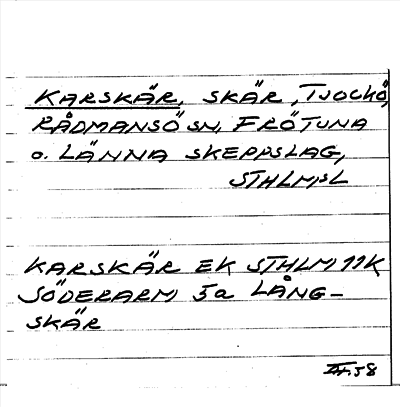 KARSKÄR, SKÄR, TJOCKÖ,
RÅDMANSÖ SN, FRÖTUNA
o. LÄNNA SKEPPSLAG,
STHLMS L
KARSKÄR EK STHLM 11K
SÖDERARM, 5a LÅNG-
SKÄR